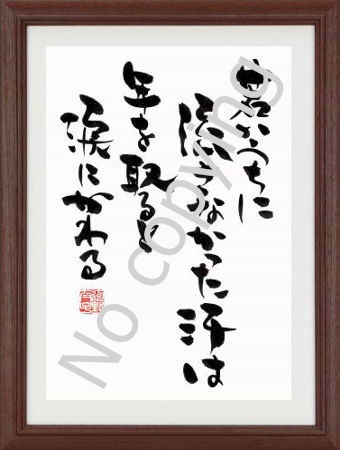 若いうちに
流さなかった汗は
年を取ると
涙にかわる
No copying